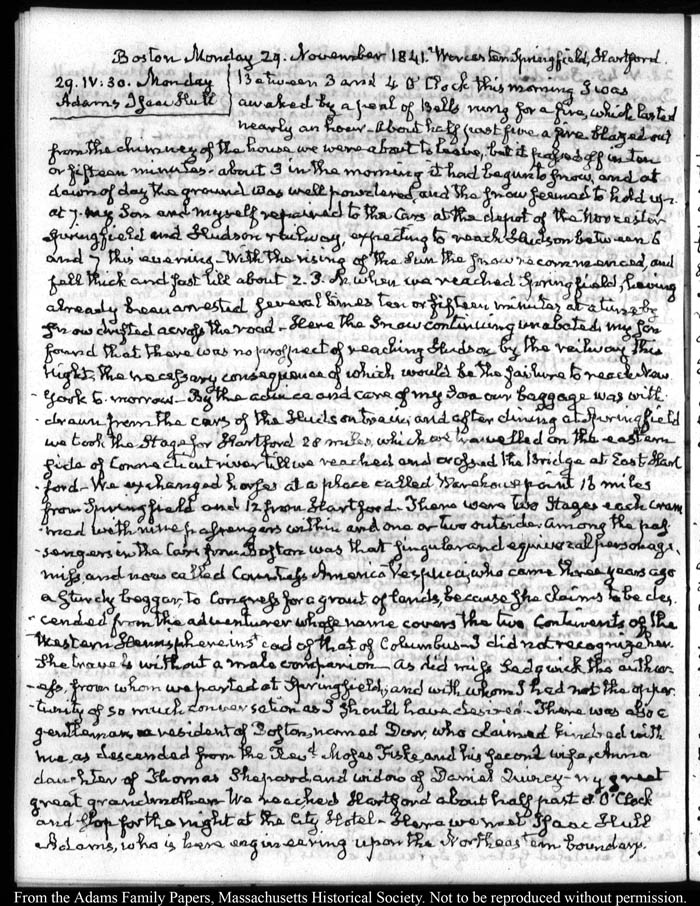 Boston Monday 29. November 1841. Worcester, Springfield, Hartford.
29. IV:30. Monday
Adams Isaac Hull
Between 3 and 4 O'Clock this morning I was
awaked by a peal of Bells rung for a fire, which lasted
nearly an hour. About half past five a fire blazed out
from the chimney of the house we were about to leave, but it passed off in ten
or fifteen minutes. about 3 in the morning it had begun to snow, and at
dawn of day the ground was well powdered, and the snow seemed to hold up.
at 7. my Son and myself repaired to the Cars at the depot of the Worcester
Springfield and Hudson railway, expecting to reach Hudson between 6
and 7 this evening. With the rising of the Sun the snow recommenced, and
fell thick and fast till about 2. P.M. when we reached Springfield; having
already been arrested several times ten or fifteen minutes at a time by
snow drifted across the road. Here the Snow continuing unabated, my Son
found that there was no prospect of reaching Hudson by the railway this
Night, the necessary consequence of which would be the failure to reach New
York to-morrow. By the advice and care of my Son our baggage was with
-drawn from the cars of the Hudson train, and after dining at Springfield
we took the Stage for Hartford 28 miles, which we travelled on the eastern
side of Connecticut river till we reached and crossed the Bridge at East Hart
-ford. We exchanged horses at a place called Warehouse point 16 miles
from Springfield and 12 from Hartford. There were two Stages each cram
-med with nine passengers within and one or two outside. Among the pas-
-sengers in the Cars from Boston was that singular and equivocal personage,
miss, and now called Countess America Vespucci, who came three years ago
a sturdy beggar, to Congress for a grant of lands, because she claims to be des-
-cended from the adventurer whose name covers the two Continents of the
Western Hemisphere instead of that of Columbus. I did not recognize her.
She travels without a male companion. As did miss Sedgwick the author-
-ess, from whom we parted at Springfield, and with whom I had not the oppor-
-tunity of so much conversation as I should have desired. There was also a
gentleman, a resident of Boston, named Dorr, who claimed kindred with
me as descended from the Revd. Moses Fiske and his second wife, Anna
daughter of Thomas Shepard, and widow of Daniel Quincy - my great
great grandmother. We reached Hartford about half past 8 O'Clock
and stop for the night at the City Hotel. Here we met Isaac Hull
Adams, who is here engineering upon the Northeastern boundary.
From the Adams Family Papers, Massachusetts Historical Society. Not to be reproduced without permission.